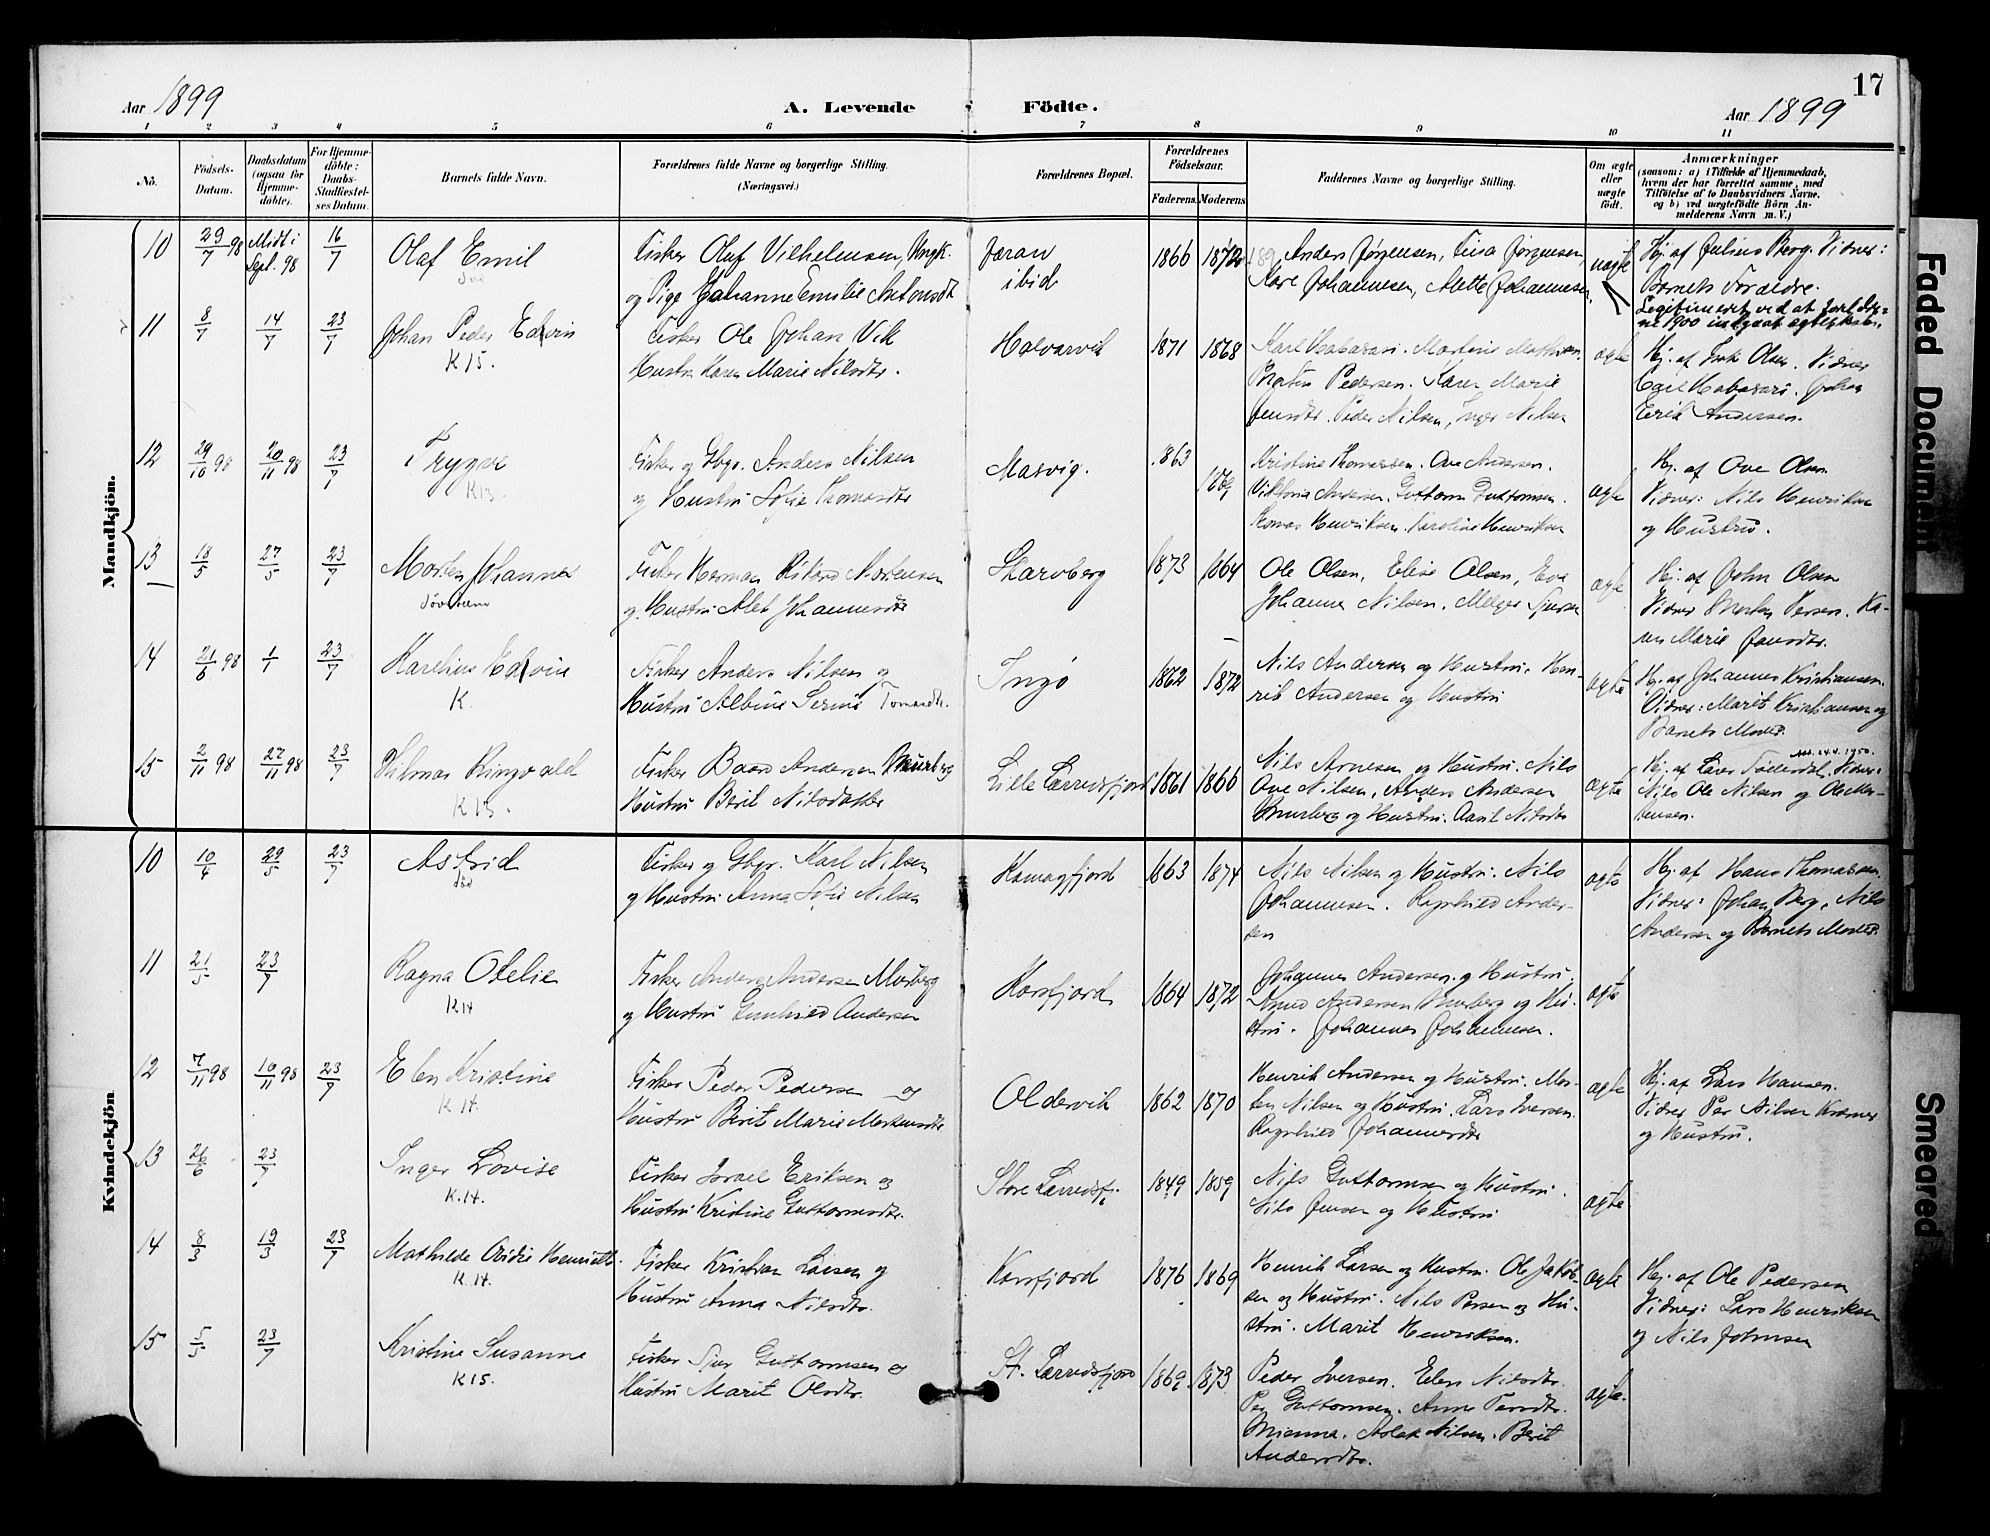 17
Aar 1899
A. Levende Födte.
Aar 1899
1 2 3 4 5 6 7 8 9 10 11
No.
Födsels-Datum.
Daabsdatum (ogsaa for Hjemme-döbte).
For Hjemme-döbte: Daabs-Stadfæstel-ses Datum.
Barnets fulde Navn.
Forældrenes fulde Navne og borgerlige Stilling. (Næringsvei.)
Forældrenes Bopæl.
Forældrenes Födselsaar.
Faderens. Moderens.
Faddernes Navne og borgerlige Stilling.
Om ægte eller uægte födt.
Anmærkninger
(saasom: a) i Tilfælde af Hjemmedaab, hvem der har forrettet samme, med Tilföielse af to Daabsvidners Navne, og b) ved uægtefödte Börn An-melderens Navn m. V.)
Mandkjön.
10 29/7 98 Midt i Sept. 98 16/7 Olaf Emil
Fisker Oluf Vilhelmsen, Ungk.
og Pige Johanne Emilie Antonsdt
Jaran
ibid
1866 1872
Anders Jørgensen, Lina Jørgensen,
Kare Johannesen, Mette Johannesen,
uægte
Hj. af Julius Berg. Vidner:
Barnets Forældre.
Legitimeret ved at foreldre-
ne 1900 indgaat ægteskab.
11 8/7 14/7 23/7 Johan Peder Edvin
K15.
Fisker Ole Johan Vik
Hustru Karen Marie Nilsdtr.
Halvarvik
1871 1868
Pedersen. Karen Marie
Jensdtr. Peder Nilsen, Inger Nilsen
ægte
Hj. af Olsen. Vidner
Johan
Erik Andersen.
12 29/10 98 20/11 98 23/7 Trygve
K15.
Fisker og Gbgr. Anders Nilsen
og Hustru Sofie Thomasdtr
Masvig.
1863
1869
Kristine Thomassen. Ove Andersen.
Viktoria Andersen. Guttorm Guttormsen.
Thomas Henriksen. Karoline Henriksen
ægte
Hj. af Ove Olsen.
Vidner: Nils Henriksen
og Hustru.
13 18/5 27/5 23/7 Morten Johannes
Fisker Herman Rikard Mortensen
og Hustru Alet Johannesdtr
Skarvberg
1873 1864
Ole Olsen, Elise Olsen, Eva
Johanne Nilsen.
ægte
Hj. af John Olsen
Vidner Morten Persen. Ka-
ren Marie Jansdtr.
14 21/6 98 1/1 23/7 Karelius Edvin
K.
Fisker Anders Nilsen og
Hustru Albine Serine Tomasdtr.
Ingø
1862 1872
Nils Andersen og Hustru. Hen-
rik Andersen og Hustru
ægte
Hj. af Johannes Kristiansen.
Vidner: Marit Kristiansen og
Barnets Moder.
15 2/11 98 27/11 98 23/7 Hilmar Ringvald
K15.
Fisker Baard Andersen Murberg
Hustru Berit Nilsdatter
Lille Lerredsfjord
1861 1866
Nils Arnesen og Hustru. Nils
Ove Nilsen, Anders Andersen
Murberg og Hustru. Nilsdtr
ægte
24.4.1950.
Hj. af Lars. Vidner:
Nils Ole Nilsen og Ole Mor-
tensen.
Kvindekjön.
10 10/4 29/5 23/7 Astrid
død
Fisker og Gbgr. Karl Nilsen
og Hustru Anna Sofie Nilsen
Komagfjord
1863 1874
Nils Nilsen og Hustru. Nils
Johannesen. Ragnhild Ander-
sen
ægte
Hj. af Hans Thomassen.
Vidner: Johan Berg, Nils
Andersen og Barnets Moder.
11 21/5 23/7 Ragna Otelie
K14
Fisker Anders Andersen Murberg
og Hustru Gunhild Andersen
Korsfjord
1864 1872
Johannes Andersen og Hustru.
Knud Andersen Murberg og Hu-
stru. Johannes Johannesen.
ægte
12 7/11 98 10/11 98 23/7 Elen Kristine
K.14.
Fisker Peder Pedersen og
Hustru Berit Marie Mortensdtr
Oldervik
1862 1870
Henrik Andersen og Hustru. Mor-
ten Nilsen og Hustru. Lars Iversen.
Ragnhild Johannesdtr
ægte
Hj. af Lars Hansen.
Vidner Per Nilsen Kræmer
og Hustru.
13 26/6 23/7 Inger Lovise
K.14.
Fisker Israel Eriksen og
Hustru Kristine Guttormsdtr.
Store Lerredsfj.
1849 1859
Nils Guttormsen og Hustru.
Nils Jensen og Hustru
ægte
14 8/3 19/3 23/7 Mathilde Ovidie Henriette.
K.14.
Fisker Kristian Larsen og
Hustru Anna Nilsdtr.
Korsfjord
1876 1869
Henrik Larsen og Hustru. Ole Jakob-
sen og Hustru. Nils Persen og Hu-
stru. Marit Henriksen.
ægte
Hj. af Ole Pedersen
Vidner: Lars Henriksen
og Nils Johnsen
15 5/5 23/7 Kristine Susanne
K15.
Fisker Sjur Guttormsen og
Hustru Marit Olsdtr.
St. Lerredsfjord
1869 1873
Peder Iversen. Elen Nilsdtr.
Per Guttormsen. Anne Persdtr.
Aslak Nilsen. Berit
Andersdtr.
ægte.
Faded Document
Smeared